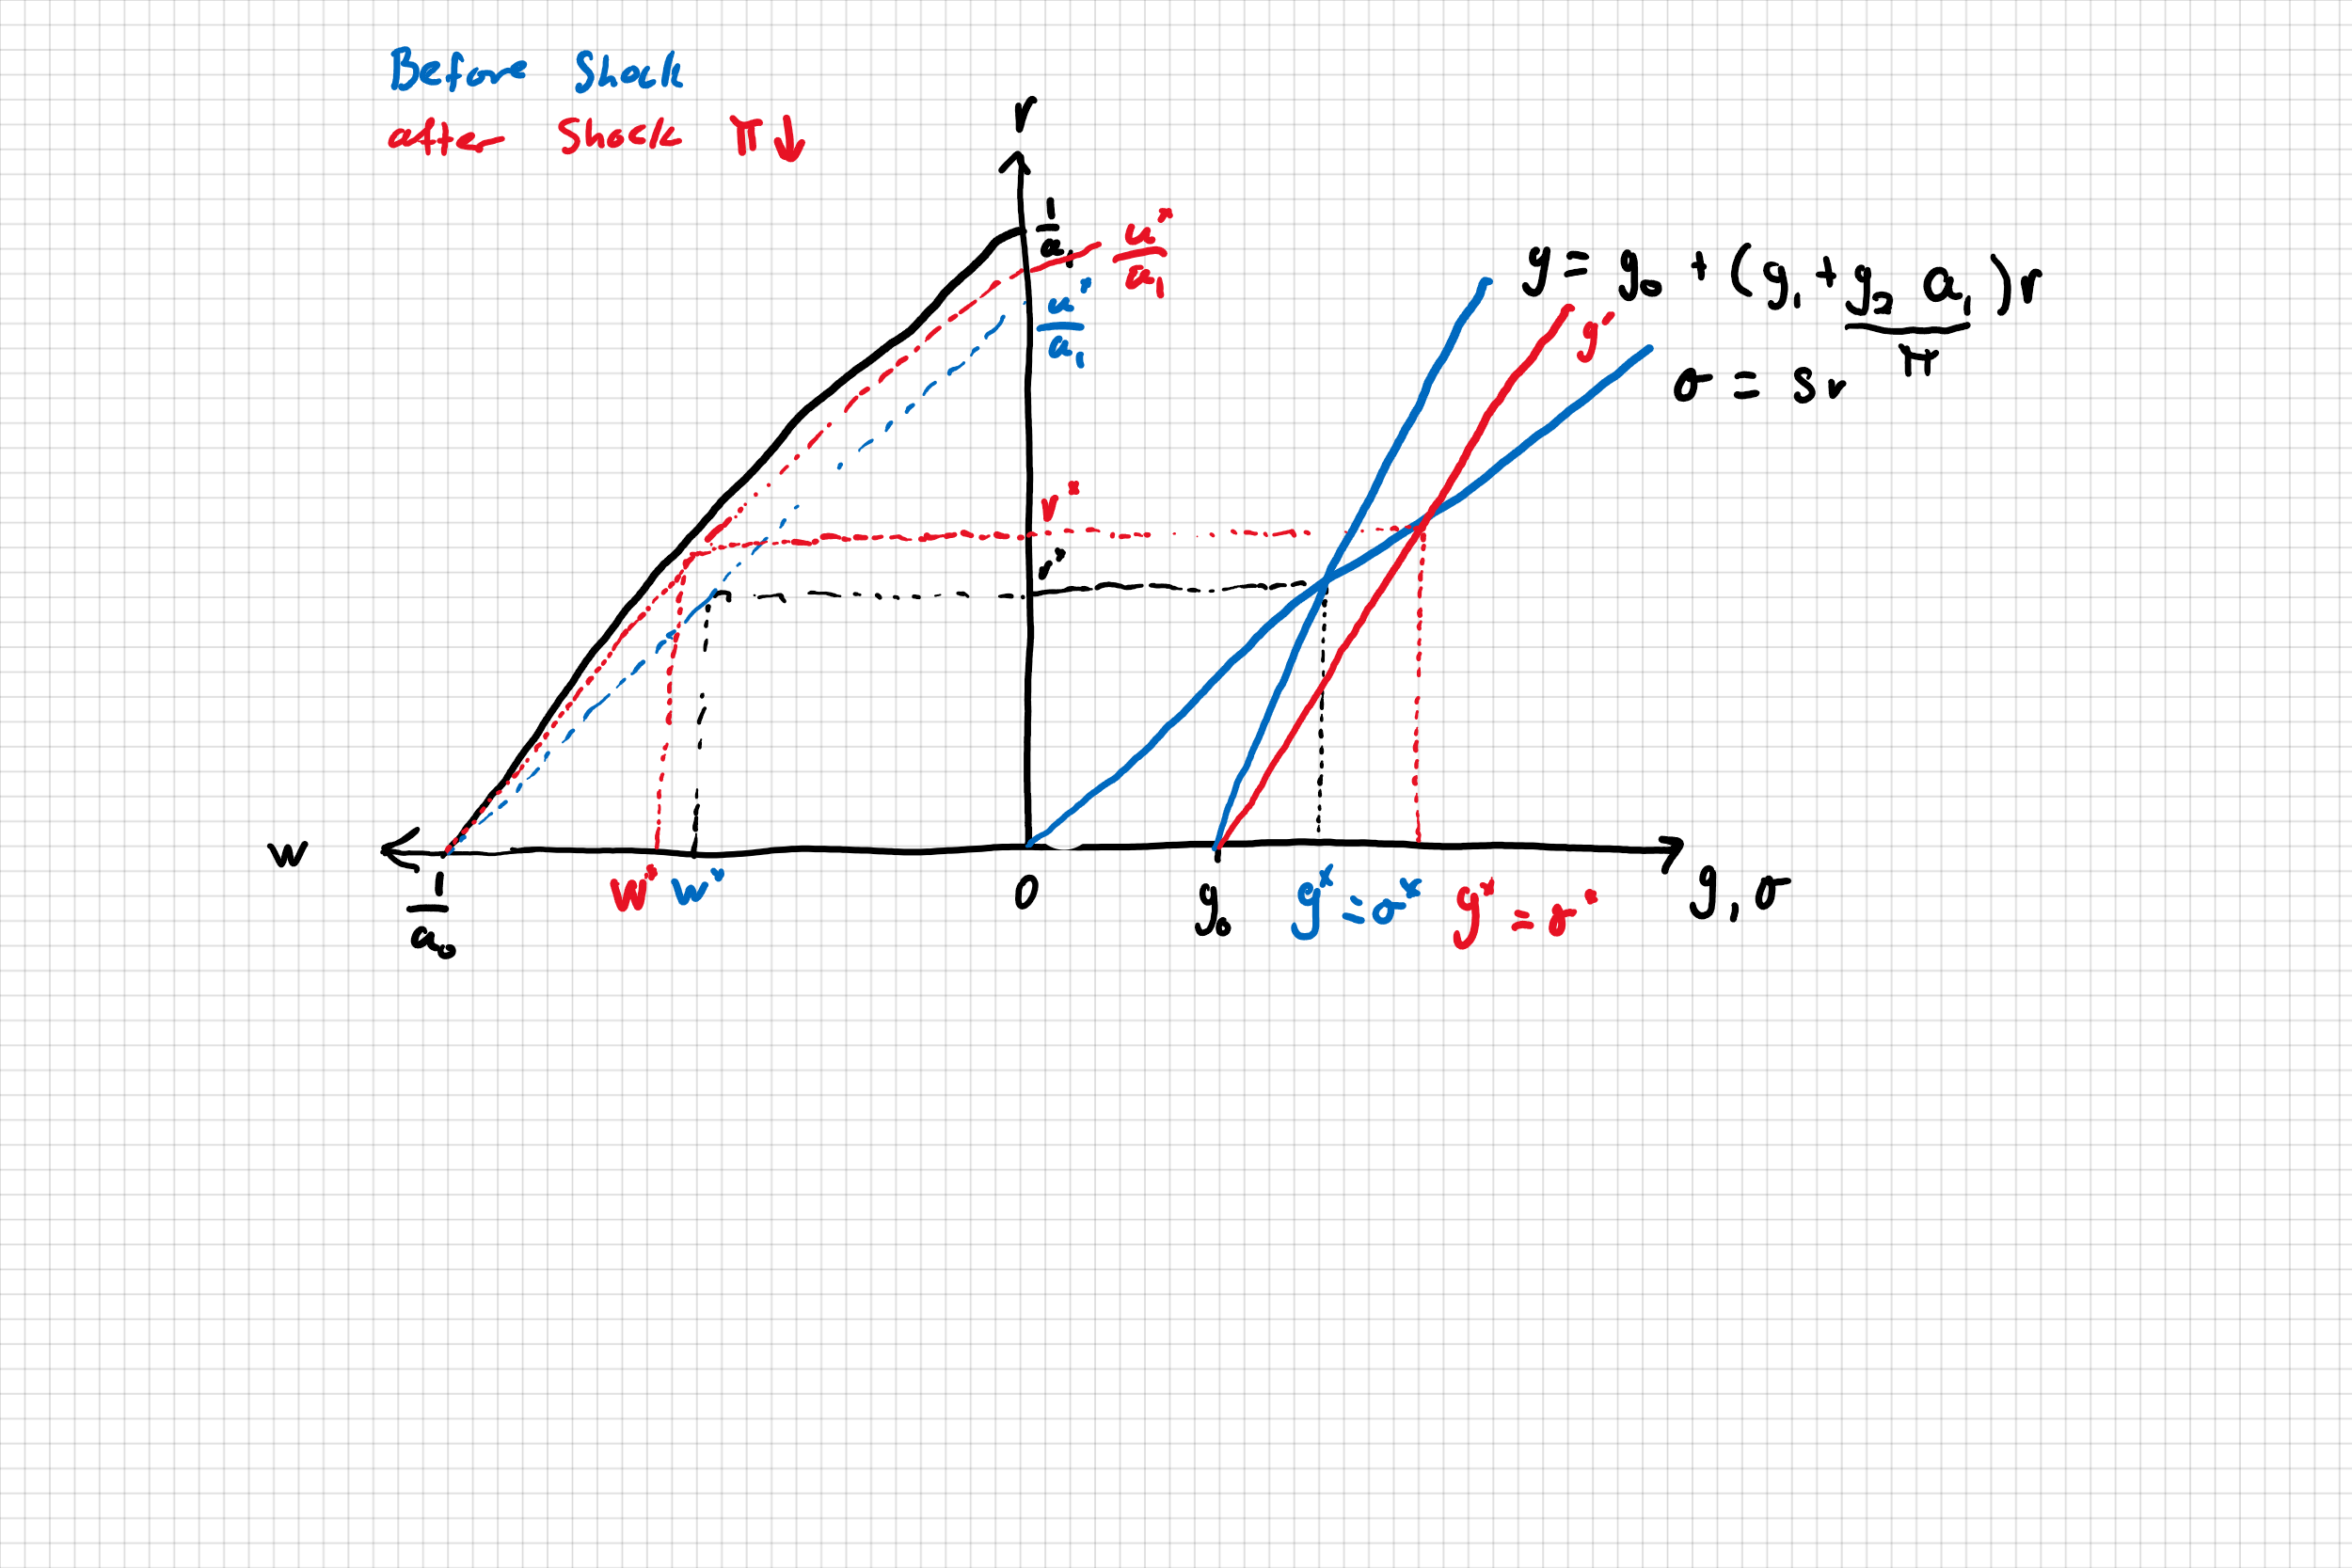 Before Shock
after Shock π↓
r
1/a₁
u*/a₁
u*/a₁
g = g₀ + (g₁ + g₂ a₁/π) r
g'
σ = sr
r*
r*
w
1/a₀
w* w*
0
g₀
g* = σ*
g* = σ*
g, σ